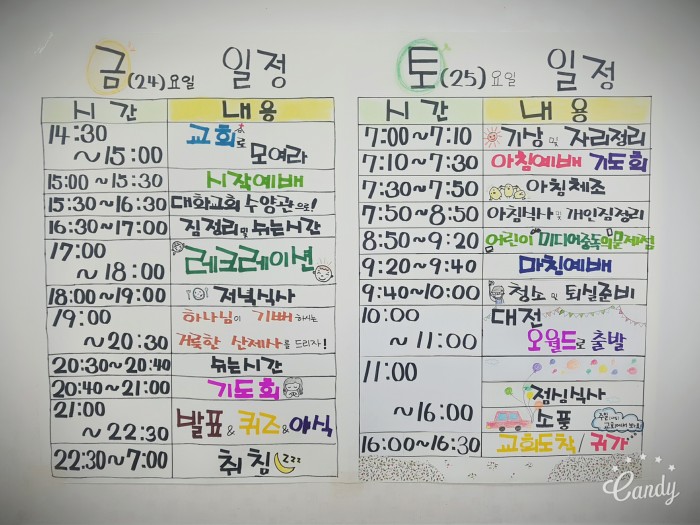 금(24)요일 일정
시간 내용
14:30
~15:00
교회로
모여라
15:00~15:30 시작예배
15:30~16:30 대화교회 수양관으로!
16:30~17:00 짐정리 및 쉬는시간
17:00
~18:00
레크레이션
18:00~19:00 저녁식사
19:00
~20:30
하나님이 기뻐하시는
거룩한 산제사를 드리자!
20:30~20:40 쉬는시간
20:40~21:00 기도회
21:00
~22:30
발표&퀴즈&야식
22:30~7:00 취침 zzz
토(25)요일 일정
시간 내용
7:00~7:10 기상 및 자리정리
7:10~7:30 아침예배 기도회
7:30~7:50 아침체조
7:50~8:50 아침식사 및 개인짐정리
8:50~9:20 어린이 미디어중독의문제점
9:20~9:40 마침예배
9:40~10:00 청소 및 퇴실준비
10:00
~11:00
대전
오월드로 출발
11:00
~16:00
점심식사
소풍
교회에서 봐요
16:00~16:30 교회도착/귀가
Candy